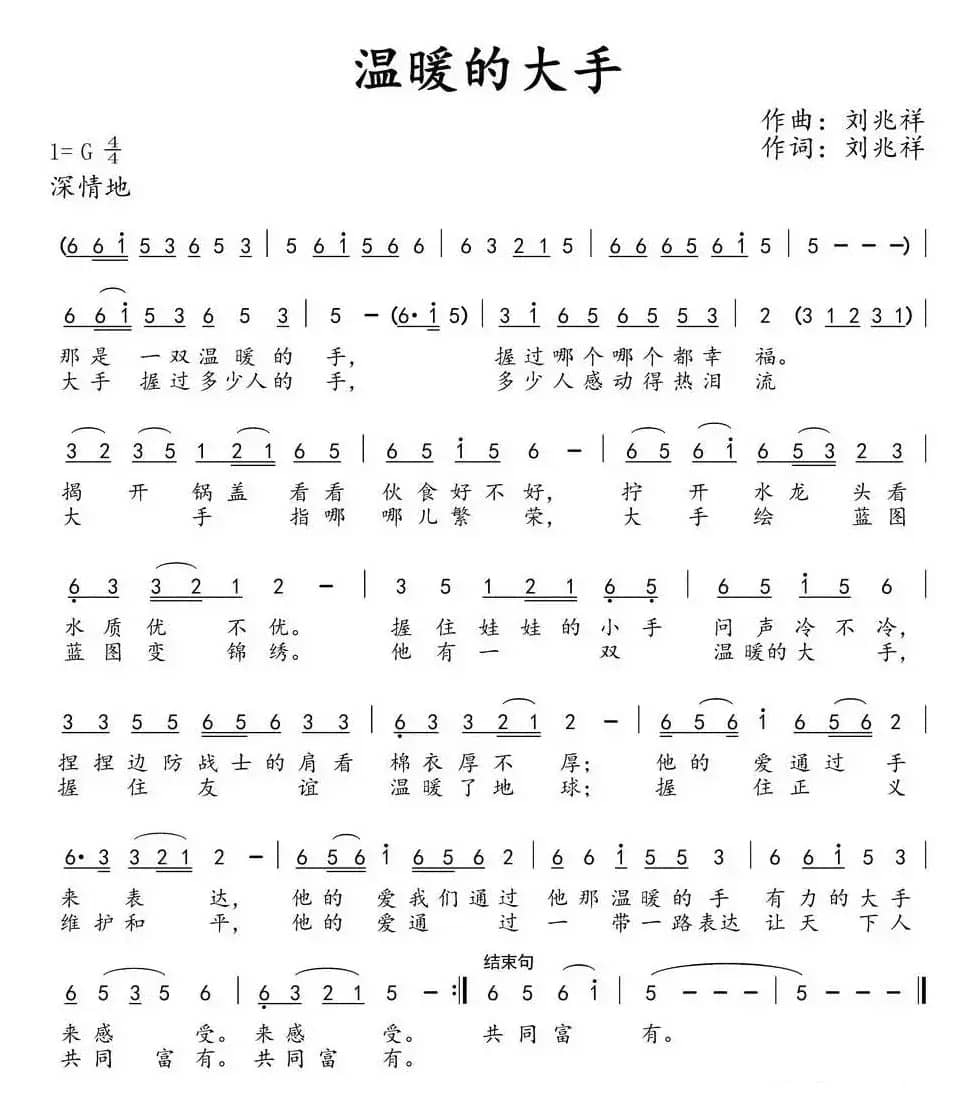 温暖的大手
作曲：刘兆祥
1= G 4/4
作词：刘兆祥
深情地
(6 6 i 5 3 6 5 3 | 5 6 i 5 6 6 | 6 3 2 1 5 | 6 6 6 5 6 i 5 | 5 - - -) |
6 6 i 5 3 6 5 3 | 5 - (6· i 5) | 3 i 6 5 6 5 5 3 | 2 (3 1 2 3 1) |
那是 一双温暖的 手， 握过哪个哪个都幸 福。
大手 握过多少人的 手， 多少人感动得热泪 流
3 2 3 5 1 2 1 6 5 | 6 5 i 5 6 - | 6 5 6 i 6 5 3 2 3 |
揭 开 锅盖 看看 伙食好不好， 拧 开 水龙 头看
大 手 指哪 哪儿繁 荣， 大 手 绘 蓝图
6 3 3 2 1 2 - | 3 5 1 2 1 6 5 | 6 5 i 5 6 |
水质优 不优。 握住娃娃的小手 问声冷不冷，
蓝图变 锦绣。 他有一 双 温暖的大 手，
3 3 5 5 6 5 6 3 3 | 6 3 3 2 1 2 - | 6 5 6 i 6 5 6 2 |
捏捏边防战士的肩看 棉衣厚不 厚； 他的 爱通过 手
握 住 友 谊 温暖了地 球； 握 住正 义
6· 3 3 2 1 2 - | 6 5 6 i 6 5 6 2 | 6 6 i 5 5 3 | 6 6 i 5 3 |
来 表 达， 他的 爱我们通过 他那温暖的手 有力的大手
维护和 平， 他的 爱通 过 一 带一路表达 让天 下人
结束句
6 5 3 5 6 | 6 3 2 1 5 - :| 6 5 6 i | 5 - - - | 5 - - - |
来感 受。来感 受。 共同富 有。
共同 富有。共同富 有。